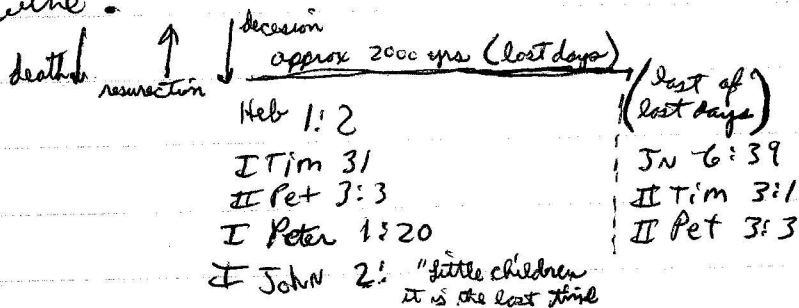 death
resurection
decesion
approx 2000 yrs (last days)
(last of
last days)
Heb 1:2
I Tim 31
II Pet 3:3
I Peter 1:20
I John 2: "little children
it is the last time
JN 6:39
II Tim 3:1
II Pet 3:3